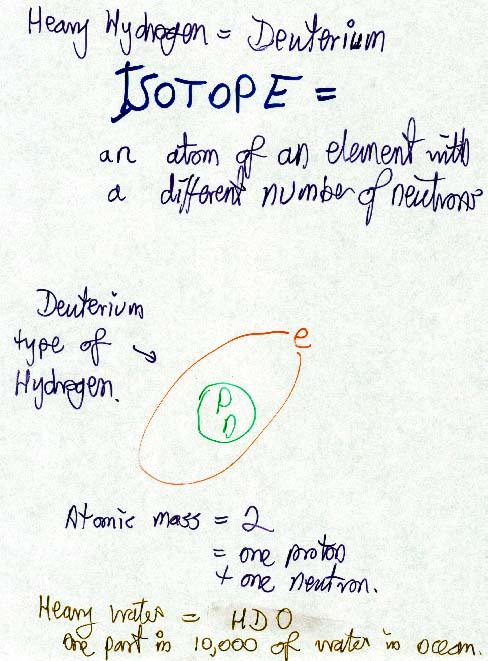 Heavy Hydrogen = Deuterium
ISOTOPE =
an atom of an element with
a different number of neutrons
Deuterium
type of
Hydrogen.
e
p
n
Atomic mass = 2
= one proton
+ one neutron.
Heavy water = HDO
One part in 10,000 of water in ocean.